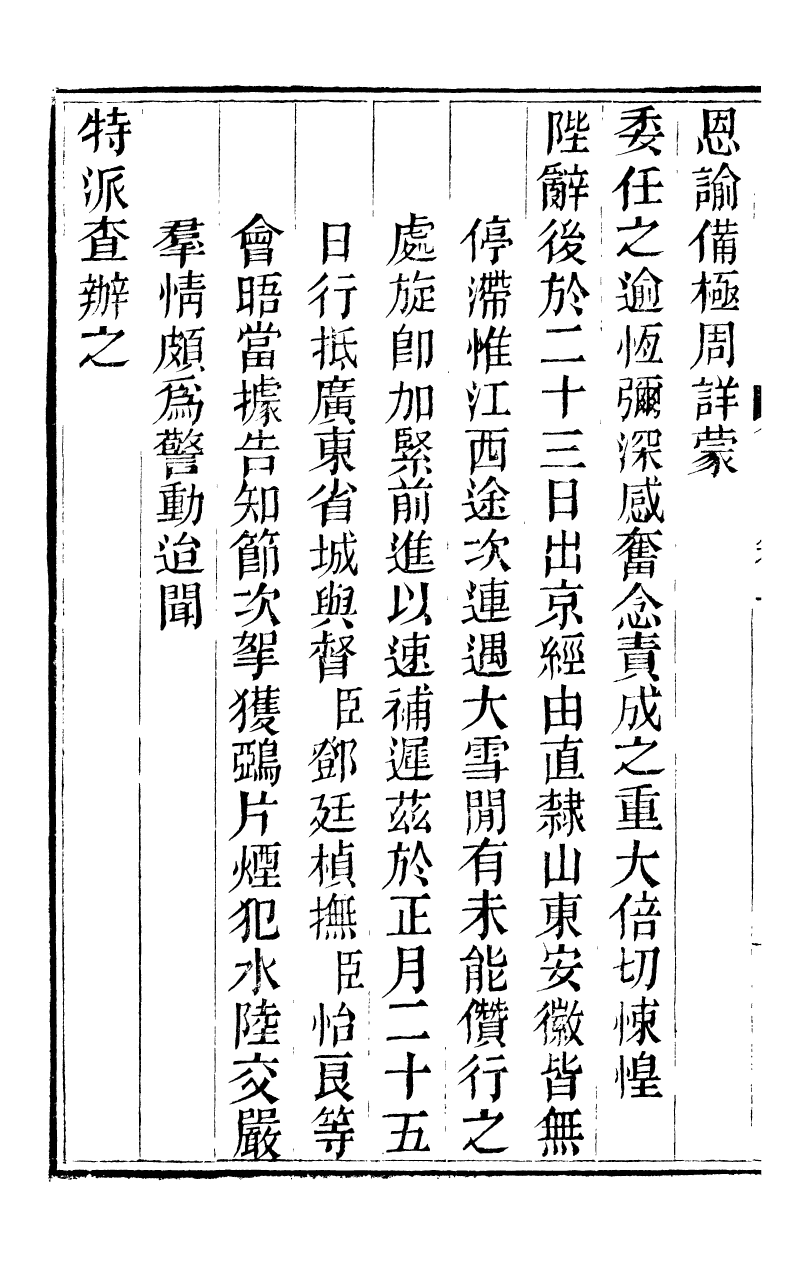 恩諭備極周詳蒙
委任之逾恆彌深感奮念責成之重大倍切悚惶
陛辭後於二十三日出京經由直隸山東安徽皆無
停滯惟江西途次連遇大雪閒有未能儧行之
處旋卽加緊前進以速補遲茲於正月二十五
日行抵廣東省城與督臣鄧廷楨撫臣怡良等
會晤當據告知節次拏獲鵶片煙犯水陸交嚴
羣情頗爲警動迨聞
特派查辦之